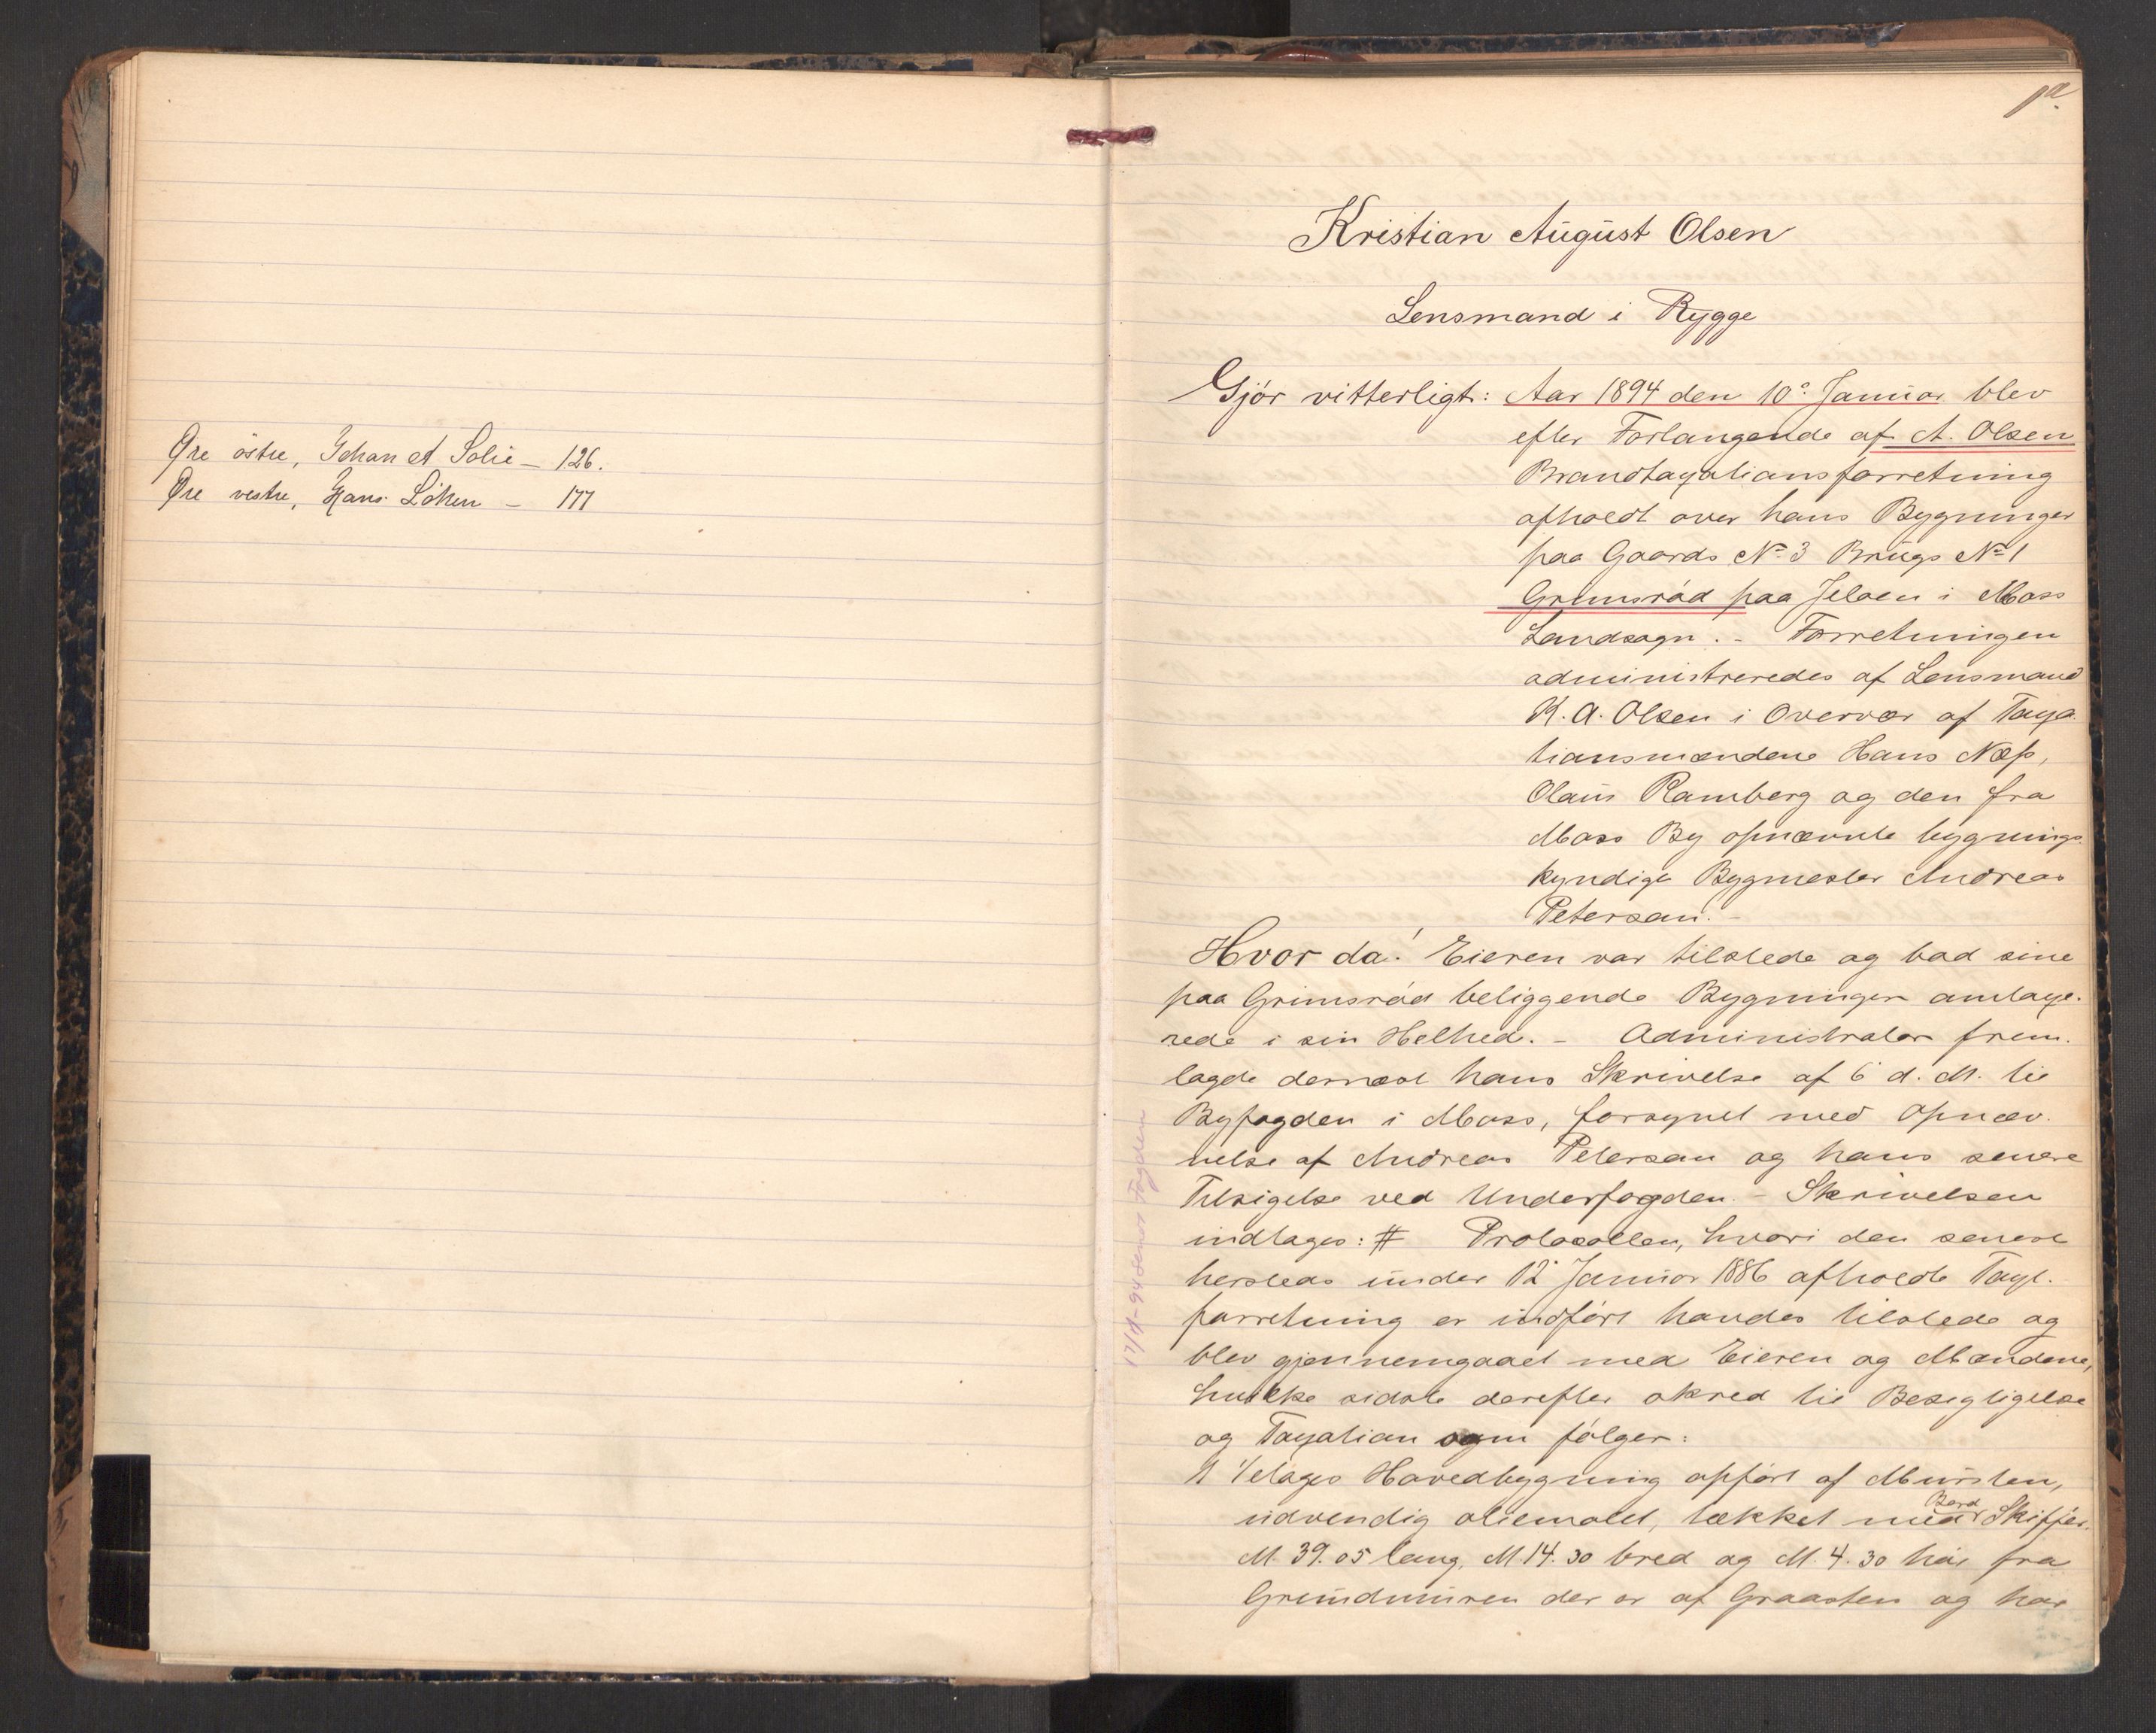 Øre östre, Johan A Solie – 126.
Øre vestre, Hans Löken – 177
1a.
Kristian August Olsen
Lensmand i Rygge
Gjör vitterligt: Aar 1894 den 10º Januar blev
efter Forlangende af A. Olsen
Brandtaxationsforretning
afholdt over hans Bygninger
paa Gaards No 3 Brugs No 1
Grimsröd paa Jeloen i Moss
Landsogn. – Forretningen
administreredes af Lensmand
K. A. Olsen i Overvær af Taxa
tionsmændene Hans Næss,
Olaus Ramberg og den fra
Moss By opnævnte bygnings
kyndige Bygmester Andreas
Peterson. –
Hvor da! Eieren var tilstede og bad sine
paa Grimsröd beliggende Bygninger omtaxe-
rede i sin Helhed. – Administrator frem-
lagde dernæst hans Skrivelse af 6 d. M. til
Byfogden i Moss, forsynet med Opnæv-
nelse af Andreas Peterson og hans senere
Tilsigelse ved Underfogden. – Skrivelsen
indtages: # Protocollen, hvori den senest
hersteds under 12 Januar 1886 afholdte Taxt-
forretning er indfört havdes tilstede og
blev gjennemgaaet med Eieren og Mændene,
hvilke sidste derefter skred til Besigtigelse
og Taxation som fölger:
1 1/etages Hovedbygning opfört af Mursten,
udvendig oliemalet, tækket med Bord Skiffer.
M. 39.05 lang, M. 14.30 bred og M. 4.30 höi fra
Grundmuren der er af Graasten og har
17/1-94 sendt Fogden